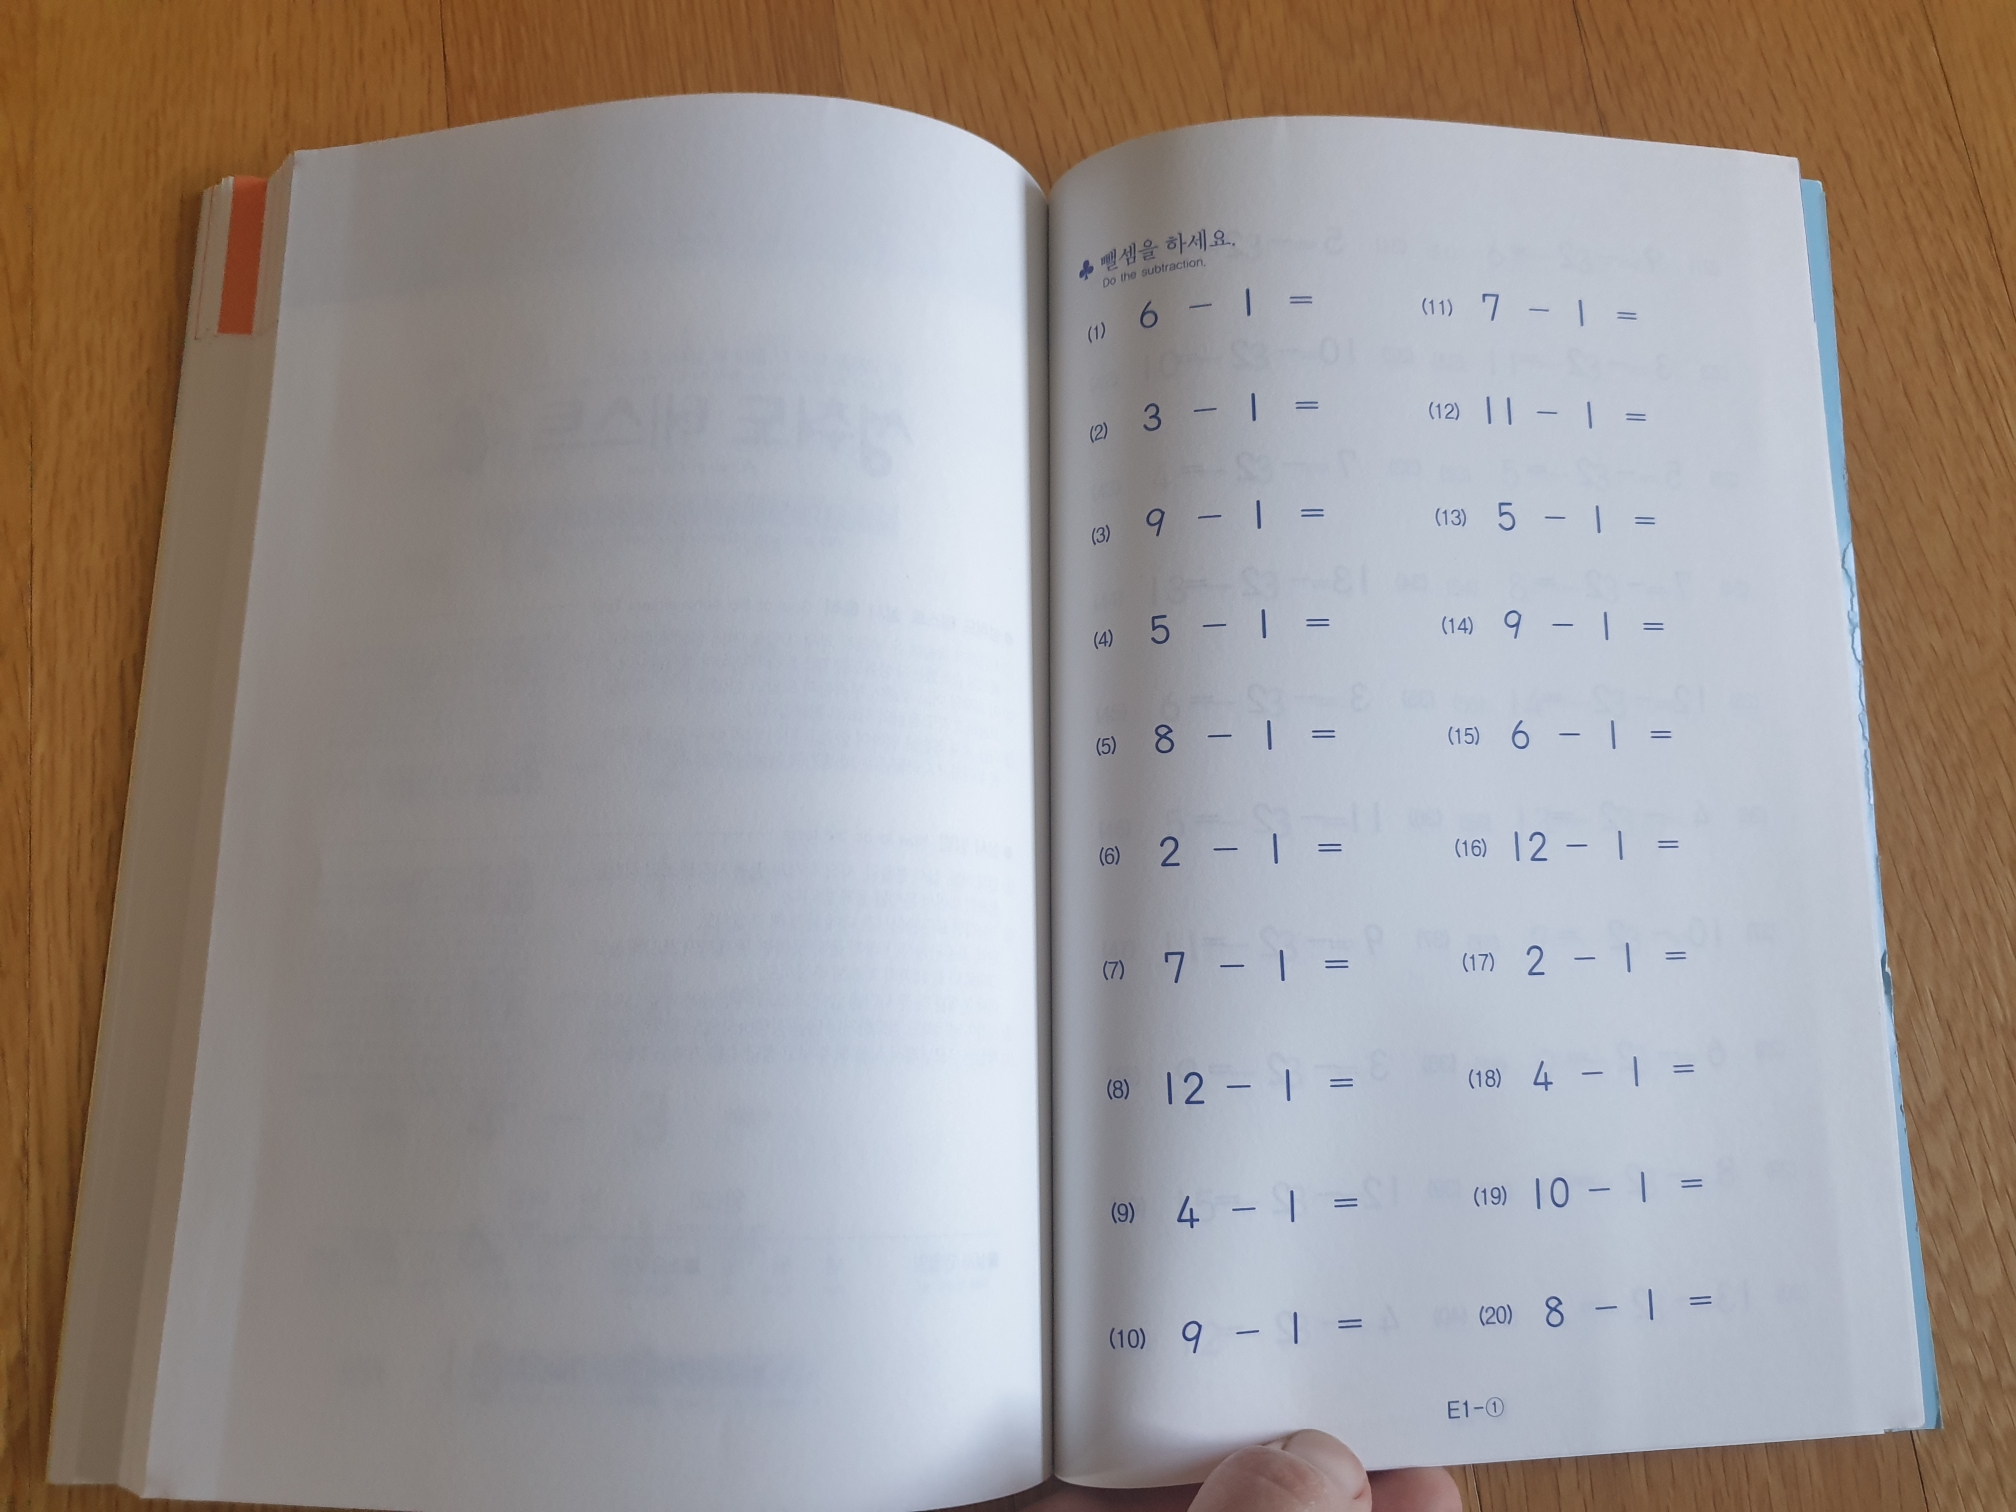 ♣ 뺄셈을 하세요.
Do the subtraction.
(1) 6 − 1 =
(2) 3 − 1 =
(3) 9 − 1 =
(4) 5 − 1 =
(5) 8 − 1 =
(6) 2 − 1 =
(7) 7 − 1 =
(8) 12 − 1 =
(9) 4 − 1 =
(10) 9 − 1 =
(11) 7 − 1 =
(12) 11 − 1 =
(13) 5 − 1 =
(14) 9 − 1 =
(15) 6 − 1 =
(16) 12 − 1 =
(17) 2 − 1 =
(18) 4 − 1 =
(19) 10 − 1 =
(20) 8 − 1 =
E1-①